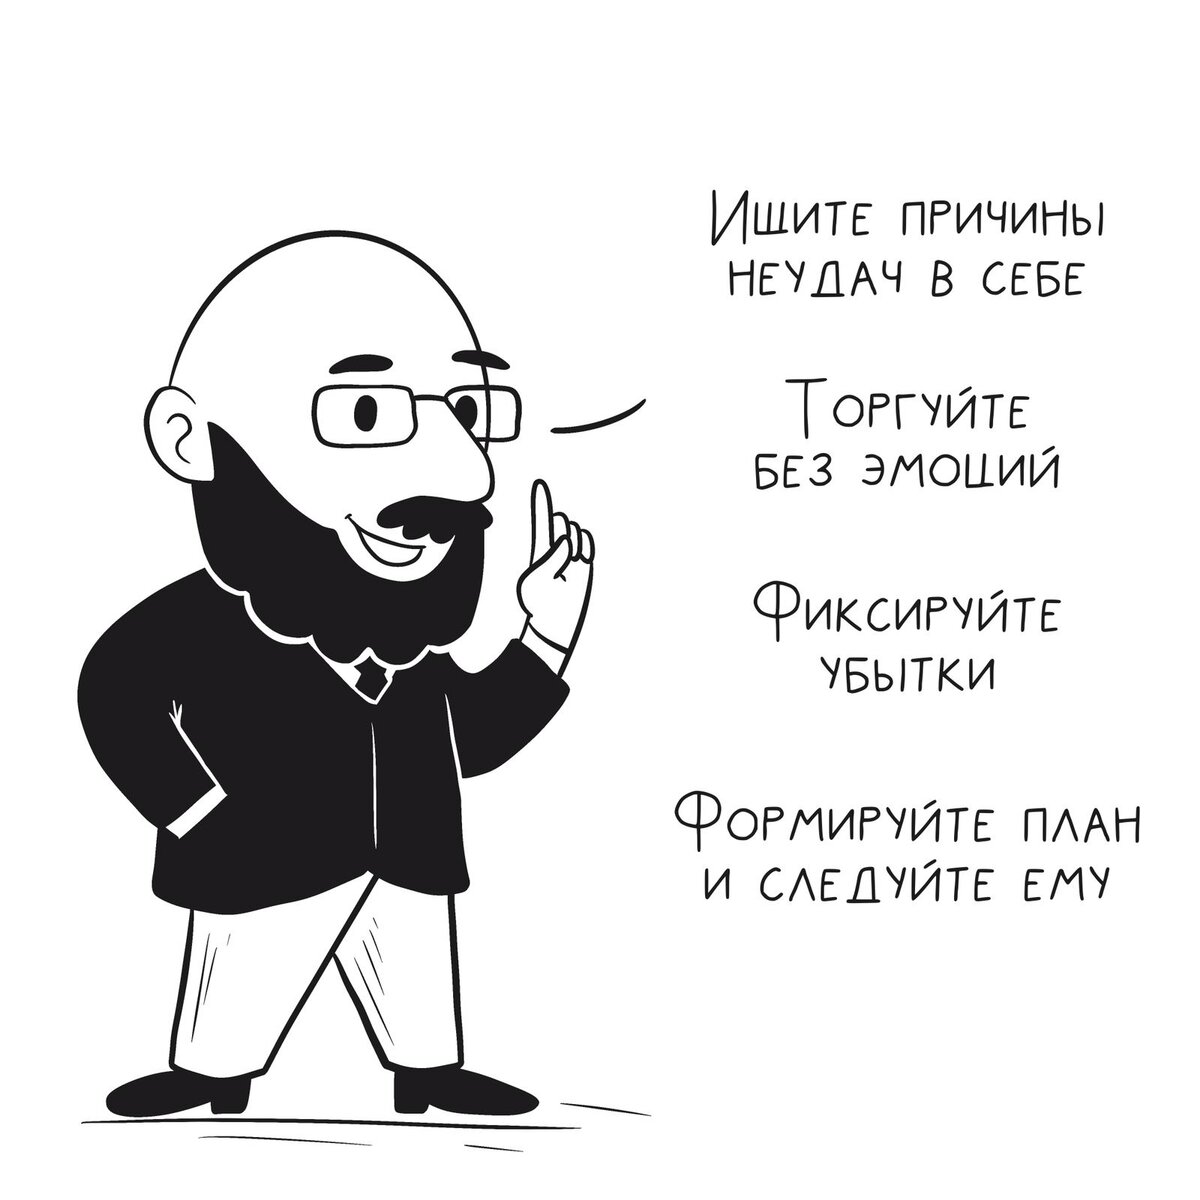 Ищите причины
неудач в себе
Торгуйте
без эмоций
Фиксируйте
убытки
Формируйте план
и следуйте ему